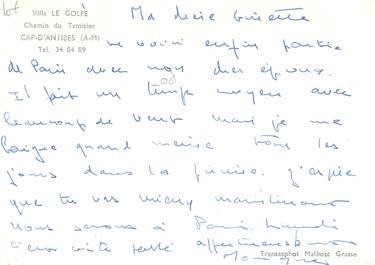 lot
Villa LE GOLFE
Chemin du Tamisier
CAP-D'ANTIBES (A-M)
Tel. 34 04 89
Ma chère Ginette
me voici enfin partie
de Paris avec mon cher époux.
Il fait un temps moyen avec
beaucoup de vent mais je me
baigne quand même tous les
jours dans la piscine. J'espère
que tu vas mieux maintenant
Nous serons à Paris Lundi
affectueusement
Transcphot Malbosc Grasse